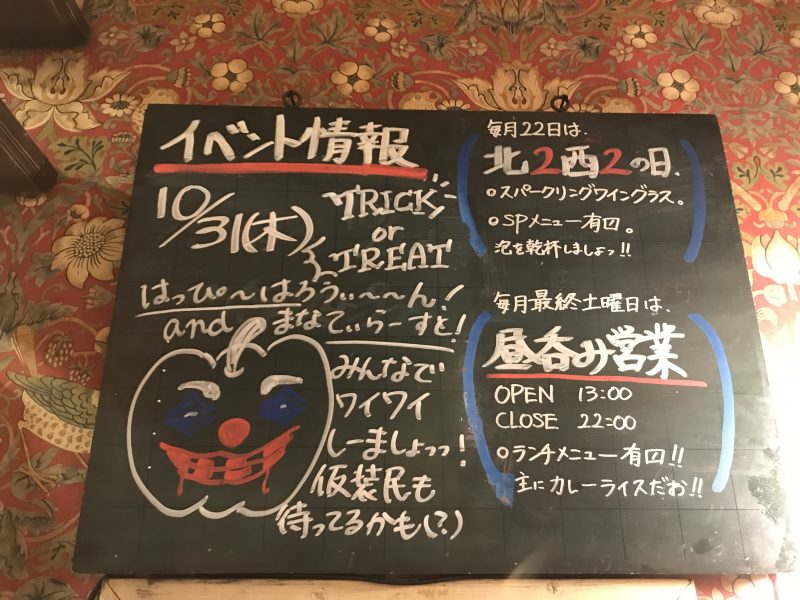 イベント情報
10/31(木)
TRICK
or
TREAT
はっぴ〜はろうぃ〜〜ん!
and まなてぃらーすと!
みんなで
ワイワイ
しーましょっっ!
仮装民も
待ってるかも(?)
毎月22日は、
北2西2の日、
スパークリングワイングラス。
SPメニュー有口。
泡を乾杯しましょっ!!
毎月最終土曜日は、
昼呑み営業
OPEN 13:00
CLOSE 22:00
ランチメニュー有口!!
主にカレーライスだお!!